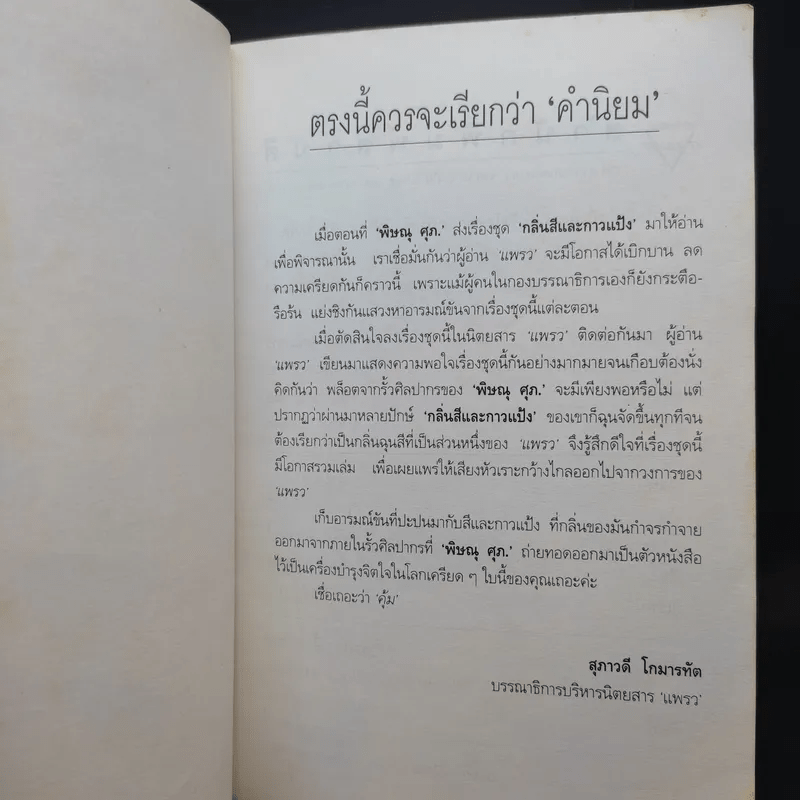 ตรงนี้ควรจะเรียกว่า ‘คำนิยม’
เมื่อตอนที่ ‘พิษณุ ศุภ.’ ส่งเรื่องชุด ‘กลิ่นสีและกาวแป้ง’ มาให้อ่าน
เพื่อพิจารณานั้น เราเชื่อมั่นกันว่าผู้อ่าน ‘แพรว’ จะมีโอกาสได้เบิกบาน ลด
ความเครียดกันก็คราวนี้ เพราะแม้ผู้คนในกองบรรณาธิการเองก็ยังกระตือ-
รือร้น แย่งชิงกันแสวงหาอารมณ์ขันจากเรื่องชุดนี้แต่ละตอน
เมื่อตัดสินใจลงเรื่องชุดนี้ในนิตยสาร ‘แพรว’ ติดต่อกันมา ผู้อ่าน
‘แพรว’ เขียนมาแสดงความพอใจเรื่องชุดนี้กันอย่างมากมายจนเกือบต้องนั่ง
คิดกันว่า พล็อตจากรั้วศิลปากรของ ‘พิษณุ ศุภ.’ จะมีเพียงพอหรือไม่ แต่
ปรากฏว่าผ่านมาหลายปักษ์ ‘กลิ่นสีและกาวแป้ง’ ของเขาก็ฉุนจัดขึ้นทุกทีจน
ต้องเรียกว่าเป็นกลิ่นฉุนสีที่เป็นส่วนหนึ่งของ ‘แพรว’ จึงรู้สึกดีใจที่เรื่องชุดนี้
มีโอกาสรวมเล่ม เพื่อเผยแพร่ให้เสียงหัวเราะกว้างไกลออกไปจากวงการของ
‘แพรว’
เก็บอารมณ์ขันที่ปะปนมากับสีและกาวแป้ง ที่กลิ่นของมันกำจรกำจาย
ออกมาจากภายในรั้วศิลปากรที่ ‘พิษณุ ศุภ.’ ถ่ายทอดออกมาเป็นตัวหนังสือ
ไว้เป็นเครื่องบำรุงจิตใจในโลกเครียด ๆ ใบนี้ของคุณเถอะค่ะ
เชื่อเถอะว่า ‘คุ้ม’
สุภาวดี โกมารทัต
บรรณาธิการบริหารนิตยสาร ‘แพรว’